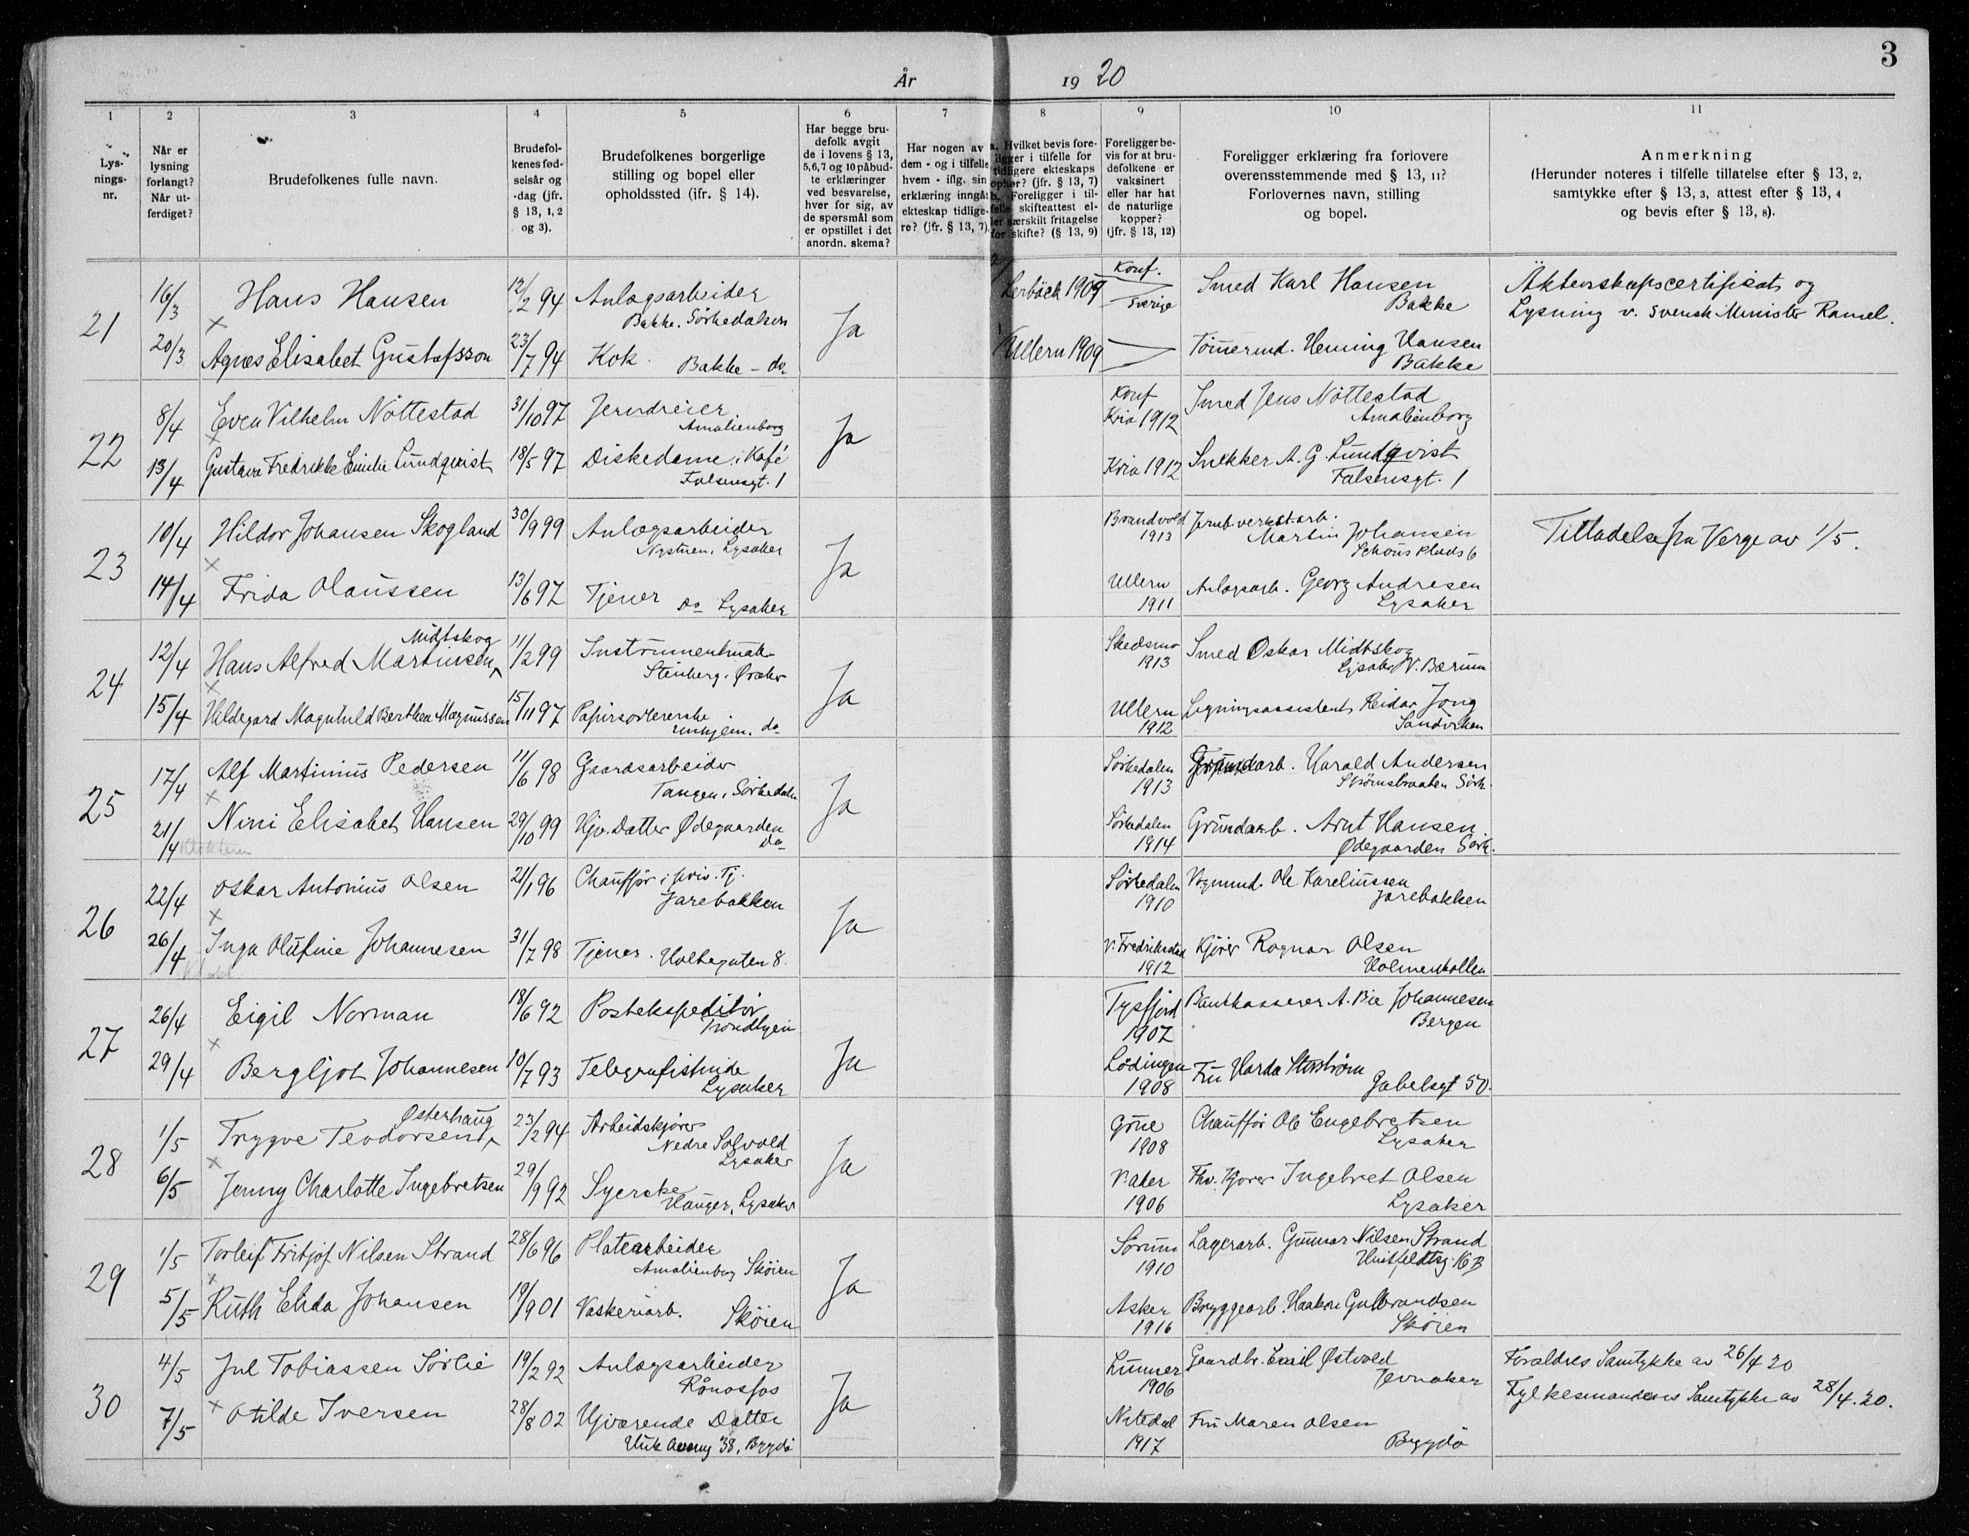 3
År 1920
1 2 3 4 5 6 7 8 9 10 11
Lys-
nings-
nr.
Når er
lysning
forlangt?
Når ut-
ferdiget?
Brudefolkenes fulle navn.
Brudefol-
kenes fød-
selsår og
-dag (jfr.
§ 13, 1, 2
og 3).
Brudefolkenes borgerlige
stilling og bopel eller
opholdssted (ifr. § 14).
Har begge bru-
defolk avgit
de i lovens § 13,
5,6,7 og 10 påbud-
te erklæringer
ved besvarelse,
hver for sig, av
de spørsmål som
er opstillet i det
anordn. skema?
Har nogen av
dem - og i tilfelle
hvem - iflg. sin
erklæring inngåt
ekteskap tidlige-
re? (jfr. § 13, 7).
a. Hvilket bevis fore-
ligger i tilfelle for
tidligere ekteskaps
ophør? (jfr. § 13, 7)
b. Foreligger i til-
felle skifteattest el-
ler særskilt fritagelse
for skifte? (§ 13, 9)
Foreligger be-
vis for at bru-
defolkene er
vaksinert
eller har hat
de naturlige
kopper?
(jfr. § 13, 12)
Foreligger erklæring fra forlovere
overensstemmende med § 13, 11?
Forlovernes navn, stilling
og bopel.
Anmerkning
(Herunder noteres i tilfelle tillatelse efter § 13, 2,
samtykke efter § 13, 3, attest efter § 13, 4
og bevis efter § 13, 8).
21
16/3 Hans Hansen 12/2 94 Anlægsarbeider
Bakke. Sørkedalen
Ja
Lerbäck 1909 Konf.
Sverige
Smed Karl Hansen
Bakke
Äktenskapscertificat og
Lysning v. Svensk Minister Ramel.
20/3 Agnes Elisabet Gustafsson 23/7 94 Kok. Bakke - do
Ullern 1909
Tømermd. Henning Hansen
Bakke
22
8/4 Even Vilhelm Nøttestad 31/10 97 Jerndreier
Amalienborg
Ja
Konf
Kria 1912
Smed Jens Nøttestad
Amalienborg
13/4 Gustava Fredrikke Emilie Lundqvist 18/5 97 Diskedame i Kafé
Falsensgt. 1
Kria 1912
Snekker A. G. Lundqvist
Falsensgt. 1
23
10/4 Hildor Johansen Skogland 30/9 99 Anlægsarbeider
Nystuen, Lysaker
Ja
Brandvold
1913
Jernb. verkst. arb.
Martin Johansen
Schous Plads 6
Tilladelse fra Verge av 1/5.
14/4 Frida Olaussen 13/6 97 Tjener Do Lysaker
Ullern
1911
Anlægsarb. Georg Andresen
Lysaker
24
12/4 Hans Alfred Martinsen Midtskog 11/2 99 Instrumentmak.
Stenberg. Øraker
Ja
Skedsmo
1913
Smed Oskar Midtskog
Lysaker V. Bærum
15/4 Hildegard Magnhild Berthea Magnussen 15/11 97 Papirsortererske
do
Ullern
1912
Ligningsassistent Reidar Jong
Sandviken
25
17/4 Alf Martinius Pedersen 11/6 98 Gaardsarbeider
Tangen, Sørkedalen
Ja
Sørkedalen
1913
Harald Andersen
Sørk.
21/4 Nini Elisabet Hansen 29/10 99 Hjv. Datter Ødegaarden
Do
Sørkedalen
1914
Grundarb. Arnt Hansen
Ødegaarden Sørk.
26
22/4 Oskar Antonius Olsen 21/1 96 Chauffør i priv. Tj.
Jarebakken
Ja
Sørkedalen
1910
Vognmd. Ole Kareliussen
Jarebakken
26/4 Inga Olufine Johannesen 31/7 98 Tjener. Holtegaten 8.
V. Fredrikstad
1912
Kjører Ragnar Olsen
Holmenkollen
27
26/4 Eigil Norman 18/6 92 Postekspeditør
Trondhjem
Ja
Tysfjord
1907
Bankkasserer A. Bie Johannesen
Bergen
29/4 Bergljot Johannesen 10/7 93 Telegrafistinde
Lysaker
Lødingen
1908
Fru Harda Storstrøm
Gabelsgt 50.
28
1/5 Trygve Teodorsen Østerhaug 23/2 94 Arbeidskjører
Nedre Solvold
Lysaker
Ja
Grue
1908
Chauffør Ole Engebretsen
Lysaker
6/5 Jenny Charlotte Ingebretsen 29/9 92 Syerske
Hauger, Lysaker
V. Aker
1906
Fhv. Kjører Ingebret Olsen
Lysaker
29
1/5 Torleif Fritjof Nilsen Strand 28/6 96 Platearbeider
Amalienborg Skøien
Ja
Sørum
1910
Lagerarb. Gunnar Nilsen Strand
Huitfeldtsg. 16 B
5/5 Ruth Elida Johansen 19/9 01 Vaskeriarb. Skøien
Asker
1916
Bryggearb. Haakon Gulbrandsen
Skøien
30
4/5 Jul Tobiassen Sørlie 19/2 92 Anlægsarbeider
Rånosfos
Ja
Lunner
1906
Gaardbr. Emil Østvold
Jevnaker
Forældres Samtykke av 26/4 20
Fylkesmandens Samtykke av 28/4. 20.
7/5 Otilde Iversen 28/8 02 Hjværende Datter
Huk Aveny 38, Bygdø
Nitedal
1917
Fru Maren Olsen
Bygdø